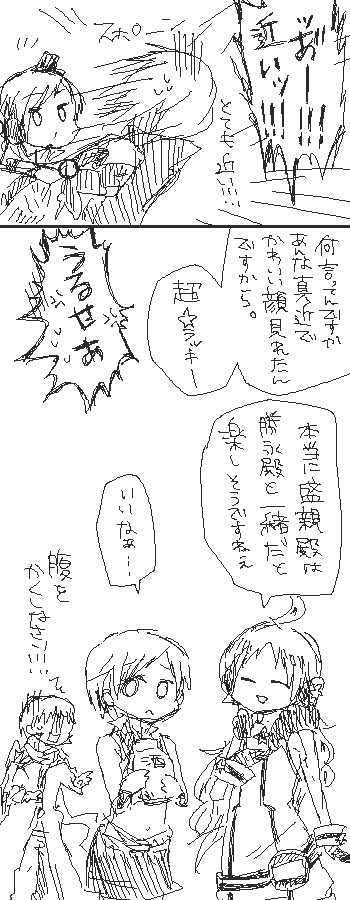 近いッ!!!
スポーン
とにかく近い…!!
何言ってんですか
あんな真近で
かわいい顔見れたん
ですから。
超☆ラッキー
うるせぁ
本当に盛親殿は
勝永殿と一緒だと
楽しそうですねぇ
いいなぁ…
腹を
かくしなさい…!!